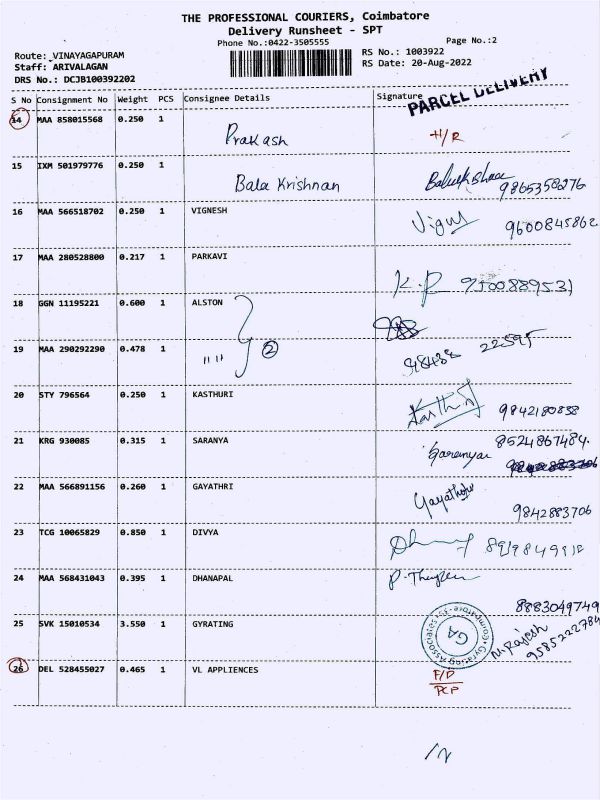 THE PROFESSIONAL COURIERS, Coimbatore
Delivery Runsheet - SPT
Phone No.:0422-3505555 Page No.:2
Route: VINAYAGAPURAM RS No.: 1003922
Staff: ARIVALAGAN RS Date: 20-Aug-2022
DRS No.: DCJB100392202
PARCEL DELIVERY
S No Consignment No Weight PCS Consignee Details Signature
14 MAA 858015568 0.250 1 Prakash H/R
15 IXM 501979776 0.250 1 Bala Krishnan Balukrishnan 9865358276
16 MAA 566518702 0.250 1 VIGNESH Vigny 9600845862
17 MAA 280528800 0.217 1 PARKAVI K.P 9500889531
18 GGN 11195221 0.600 1 ALSTON
19 MAA 290292290 0.478 1 " " 2 98438 22595
20 STY 796564 0.250 1 KASTHURI Kasthuri 9842180858
21 KRG 930085 0.315 1 SARANYA Saranya 8524867484.
22 MAA 566891156 0.260 1 GAYATHRI Gayathri 9842883706
23 TCG 10065829 0.850 1 DIVYA
24 MAA 568431043 0.395 1 DHANAPAL 8883049749
25 SVK 15010534 3.550 1 GYRATING Gyrating Associates Coimbatore-35 GA M. Rajesh 9585222784
26 DEL 528455027 0.465 1 VL APPLIENCES F/D
PCP